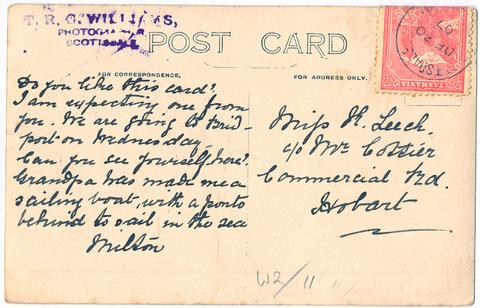 T. R. G. WILLIAMS,
PHOTOGRAPHER,
SCOTTSDALE
POST CARD
FOR CORRESPONDENCE.
FOR ADDRESS ONLY.
TASMANIA
DE 20
07
Do you like this card?
I am expecting one from
you. We are going to Brid-
port on Wednesday.
Can you see yourself here?
Grandpa has made me a
sailing boat, with a
behind to sail in the sea
Milton
Miss K. Leech,
c/o Mr
Commercial Rd.
Hobart
W2/11